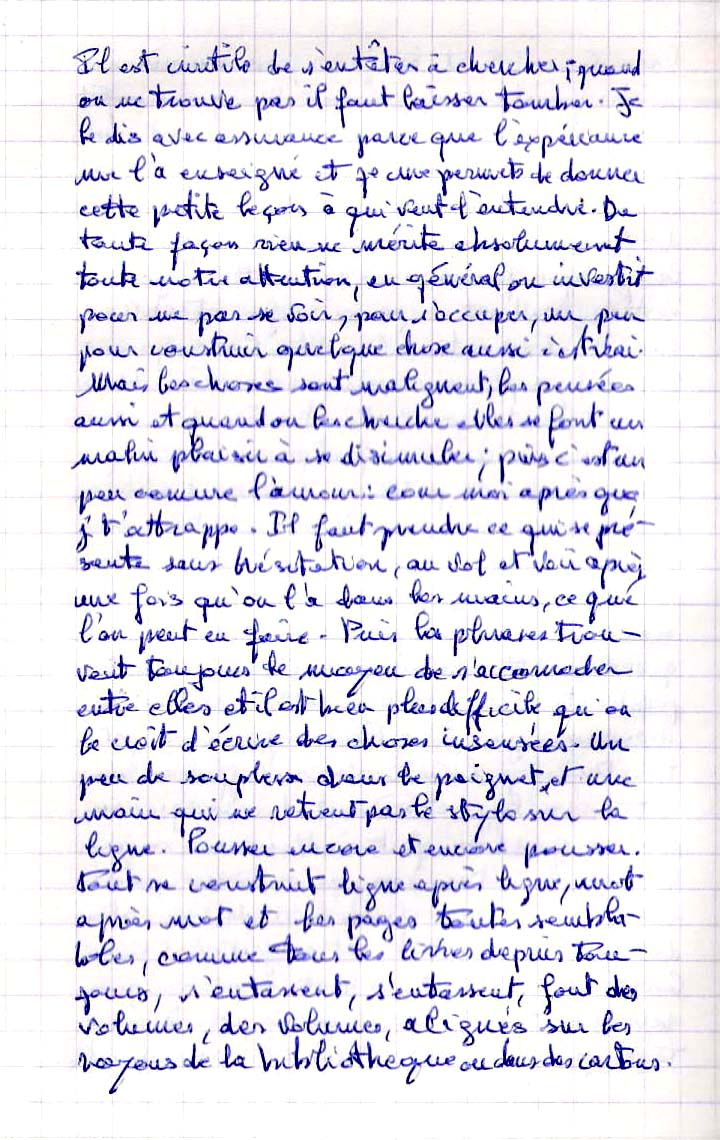 Il est inutile de s'entêter à chercher; quand
on ne trouve pas il faut laisser tomber. Je
le dis avec assurance parce que l'expérience
me l'à enseigné et je me permets de donner
cette petite leçon à qui veut l'entendre. De
toute façon rien ne mérite absolument
toute notre attention, en général on investit
pour ne pas se voir, pour s'occuper, un peu
pour construir quelque chose aussi c'est vrai.
Mais les choses sont malignent, les pensées
aussi et quand on les cherche elles se font un
malin plaisir à se disimuler; puis c'est un
peu comme l'amour: cour moi après que
j't'attrappe. Il faut prendre ce qui se pré-
sente sans hésitation, au vol et voir après,
une fois qu'on l'a dans les mains, ce que
l'on peut en faire. Puis les phrases trou-
vent toujours le moyen de s'accomoder
entre elles et il est bien plus difficile qu'on
le croit d'écrire des choses insensées. Un
peu de souplesse dans le poignet, et une
main qui ne retient pas le stylo sur la
ligne. Pousser encore et encore pousser.
Tout se construit ligne après ligne, mot
après mot et les pages toutes sembla-
bles, comme tous les livres depuis tou-
jours, s'entassent, s'entassent, font des
volumes, des volumes, alignés sur les
rayons de la bibliothèque ou dans des cartons.